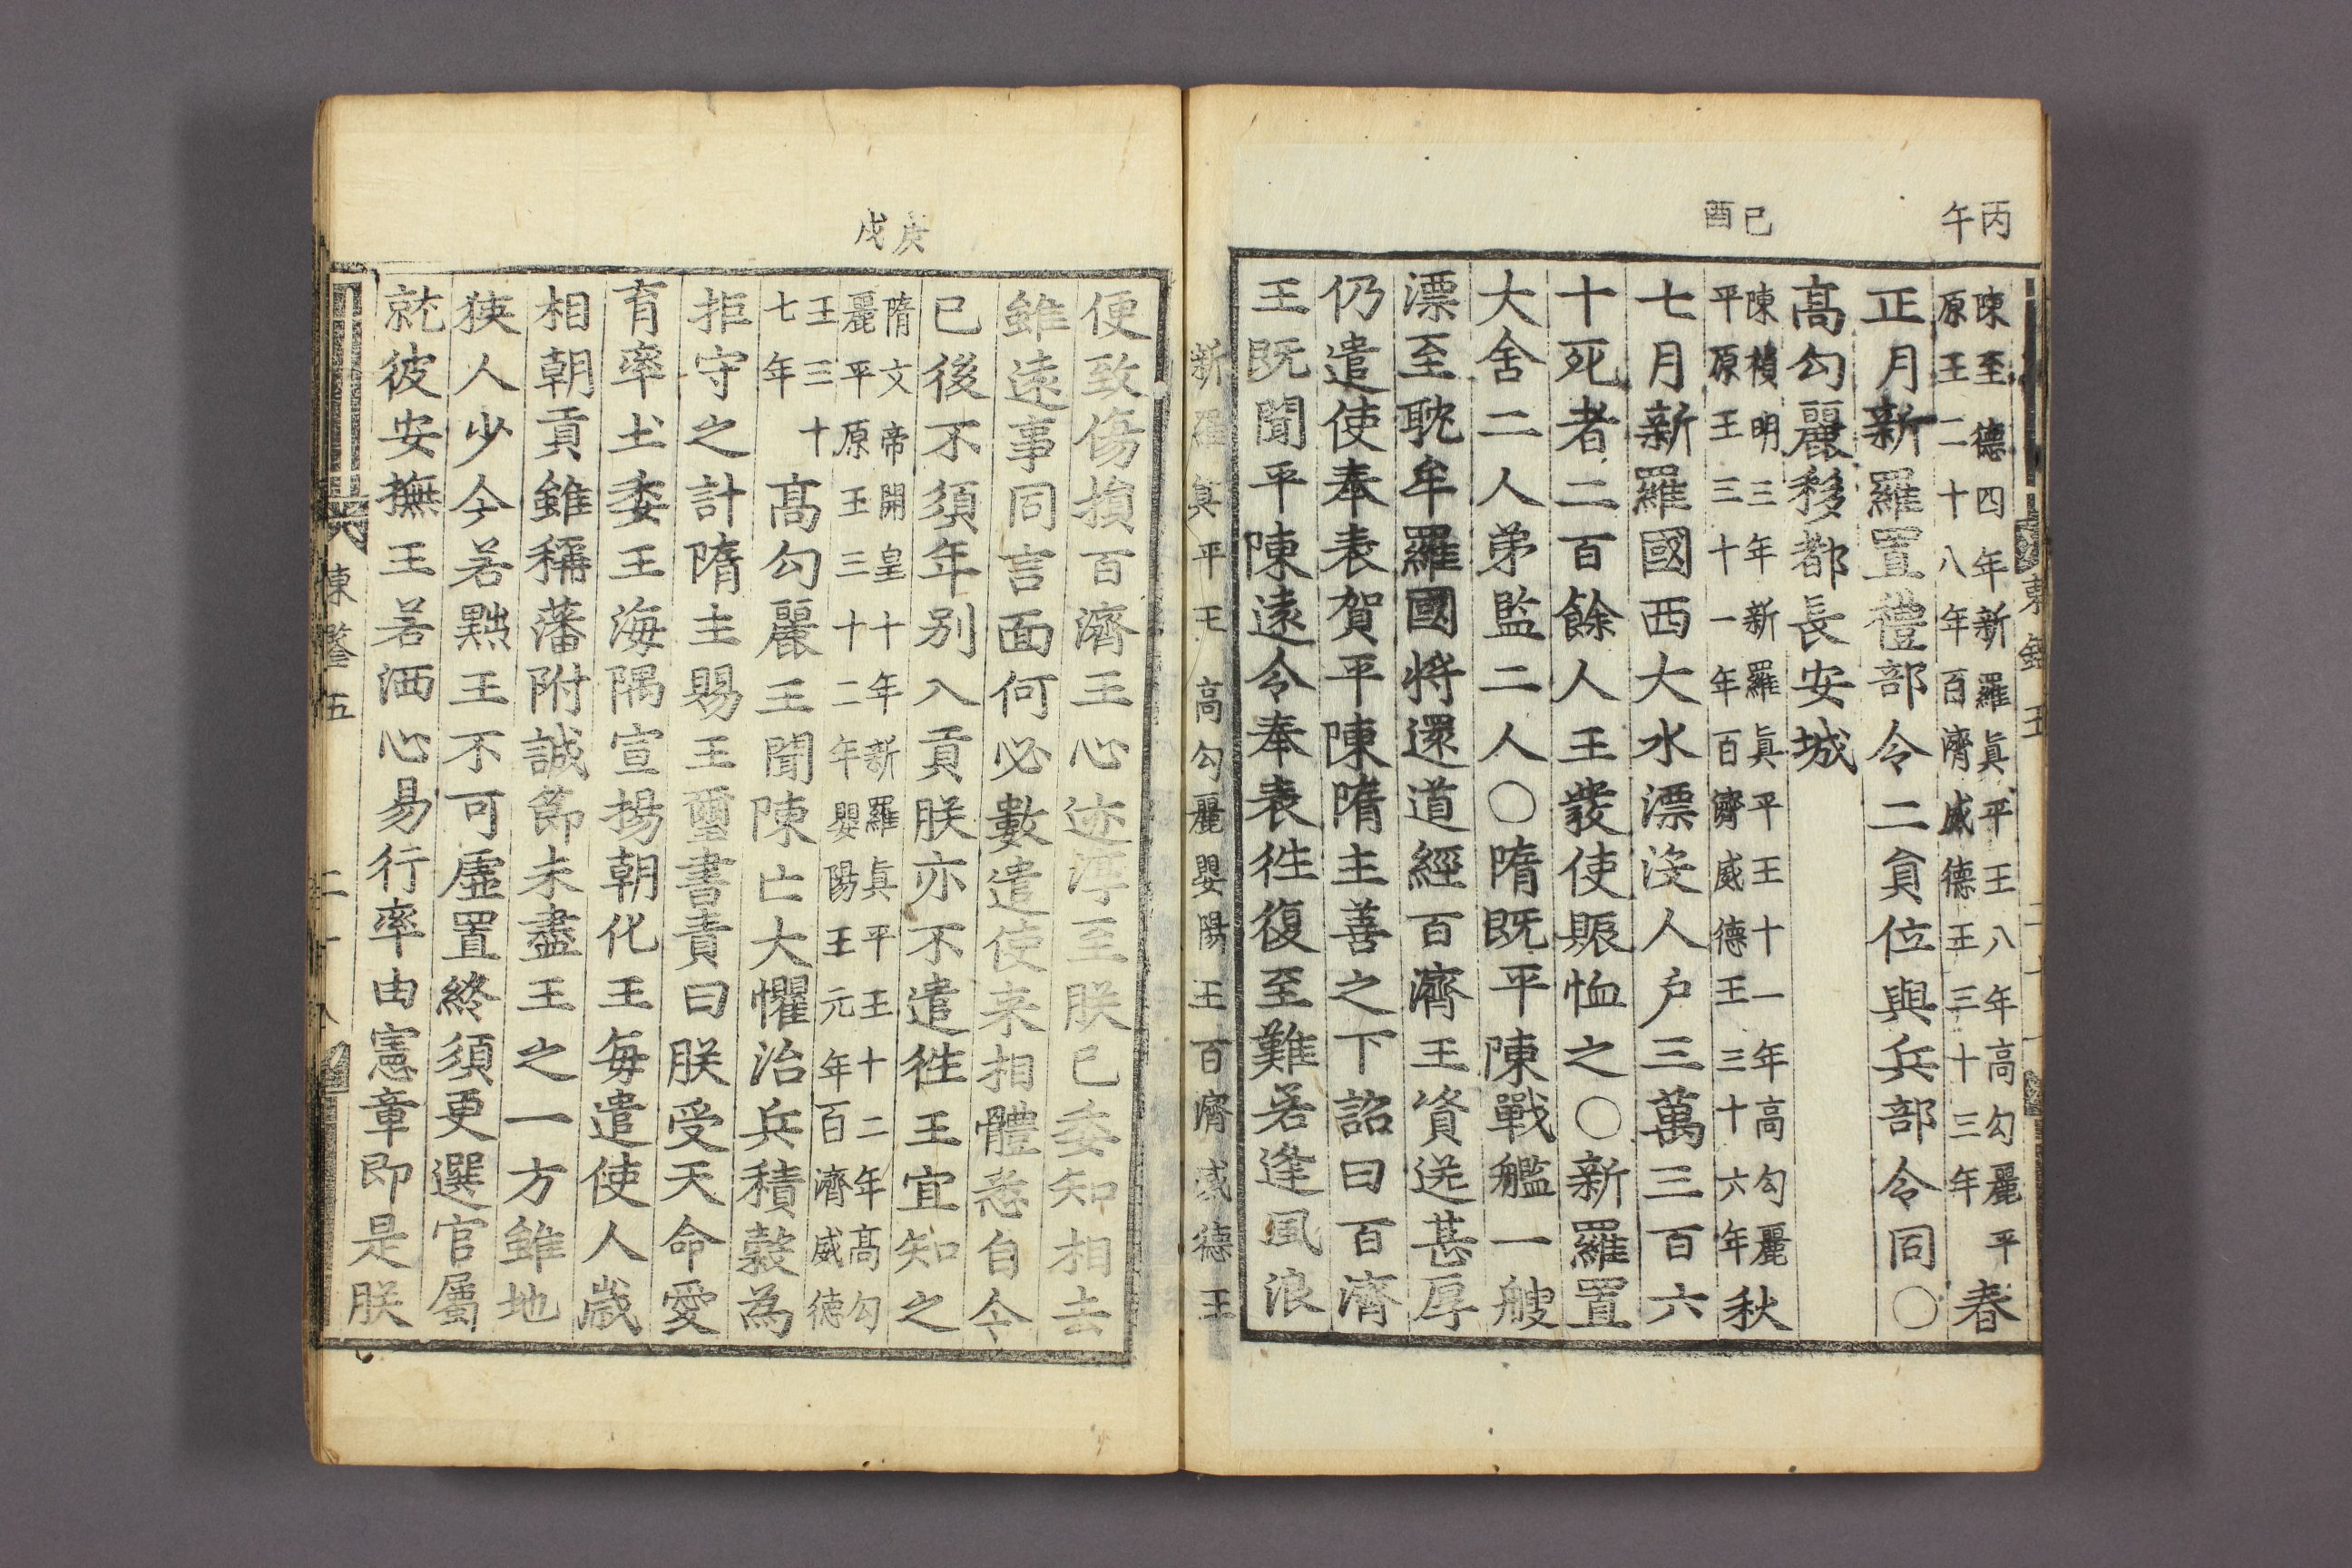 丙午
陳至德四年新羅眞平王八年高勾麗平
原王二十八年百濟威德王三十三年
春
正月新羅置禮部令二貟位與兵部令同〇
高勾麗移都長安城
己酉
陳禎明三年新羅眞平王十一年高勾麗
平原王三十一年百濟威德王三十六年
秋
七月新羅國西大水漂沒人戶三萬三百六
十死者二百餘人王發使賑恤之〇新羅置
大舍二人弟監二人〇隋既平陳戰艦一艘
漂至耽牟羅國將還道經百濟王資送甚厚
仍遣使奉表賀平陳隋主善之下詔曰百濟
王既聞平陳遠令奉表徃復至難若逢風浪
新羅眞平王 高勾麗嬰陽王百濟威德王
便致傷損百濟王心迹淳至朕已委知相去
雖遠事同言面何必數遣使来相體悉自今
已後不須年別入貢朕亦不遣徃王宜知之
庚戌
隋文帝開皇十年新羅眞平王十二年高勾
麗平原王三十二年嬰陽王元年百濟威德
王三十
七年
高勾麗王聞陳亡大懼治兵積穀為
拒守之計隋主賜王璽書責曰朕受天命愛
育率土委王海隅宣揚朝化王每遣使人歲
相朝貢雖稱藩附誠節未盡王之一方雖地
狹人少今若黜王不可虛置終須更選官屬
就彼安撫王若洒心易行率由憲章即是朕
東鑑五 二十八